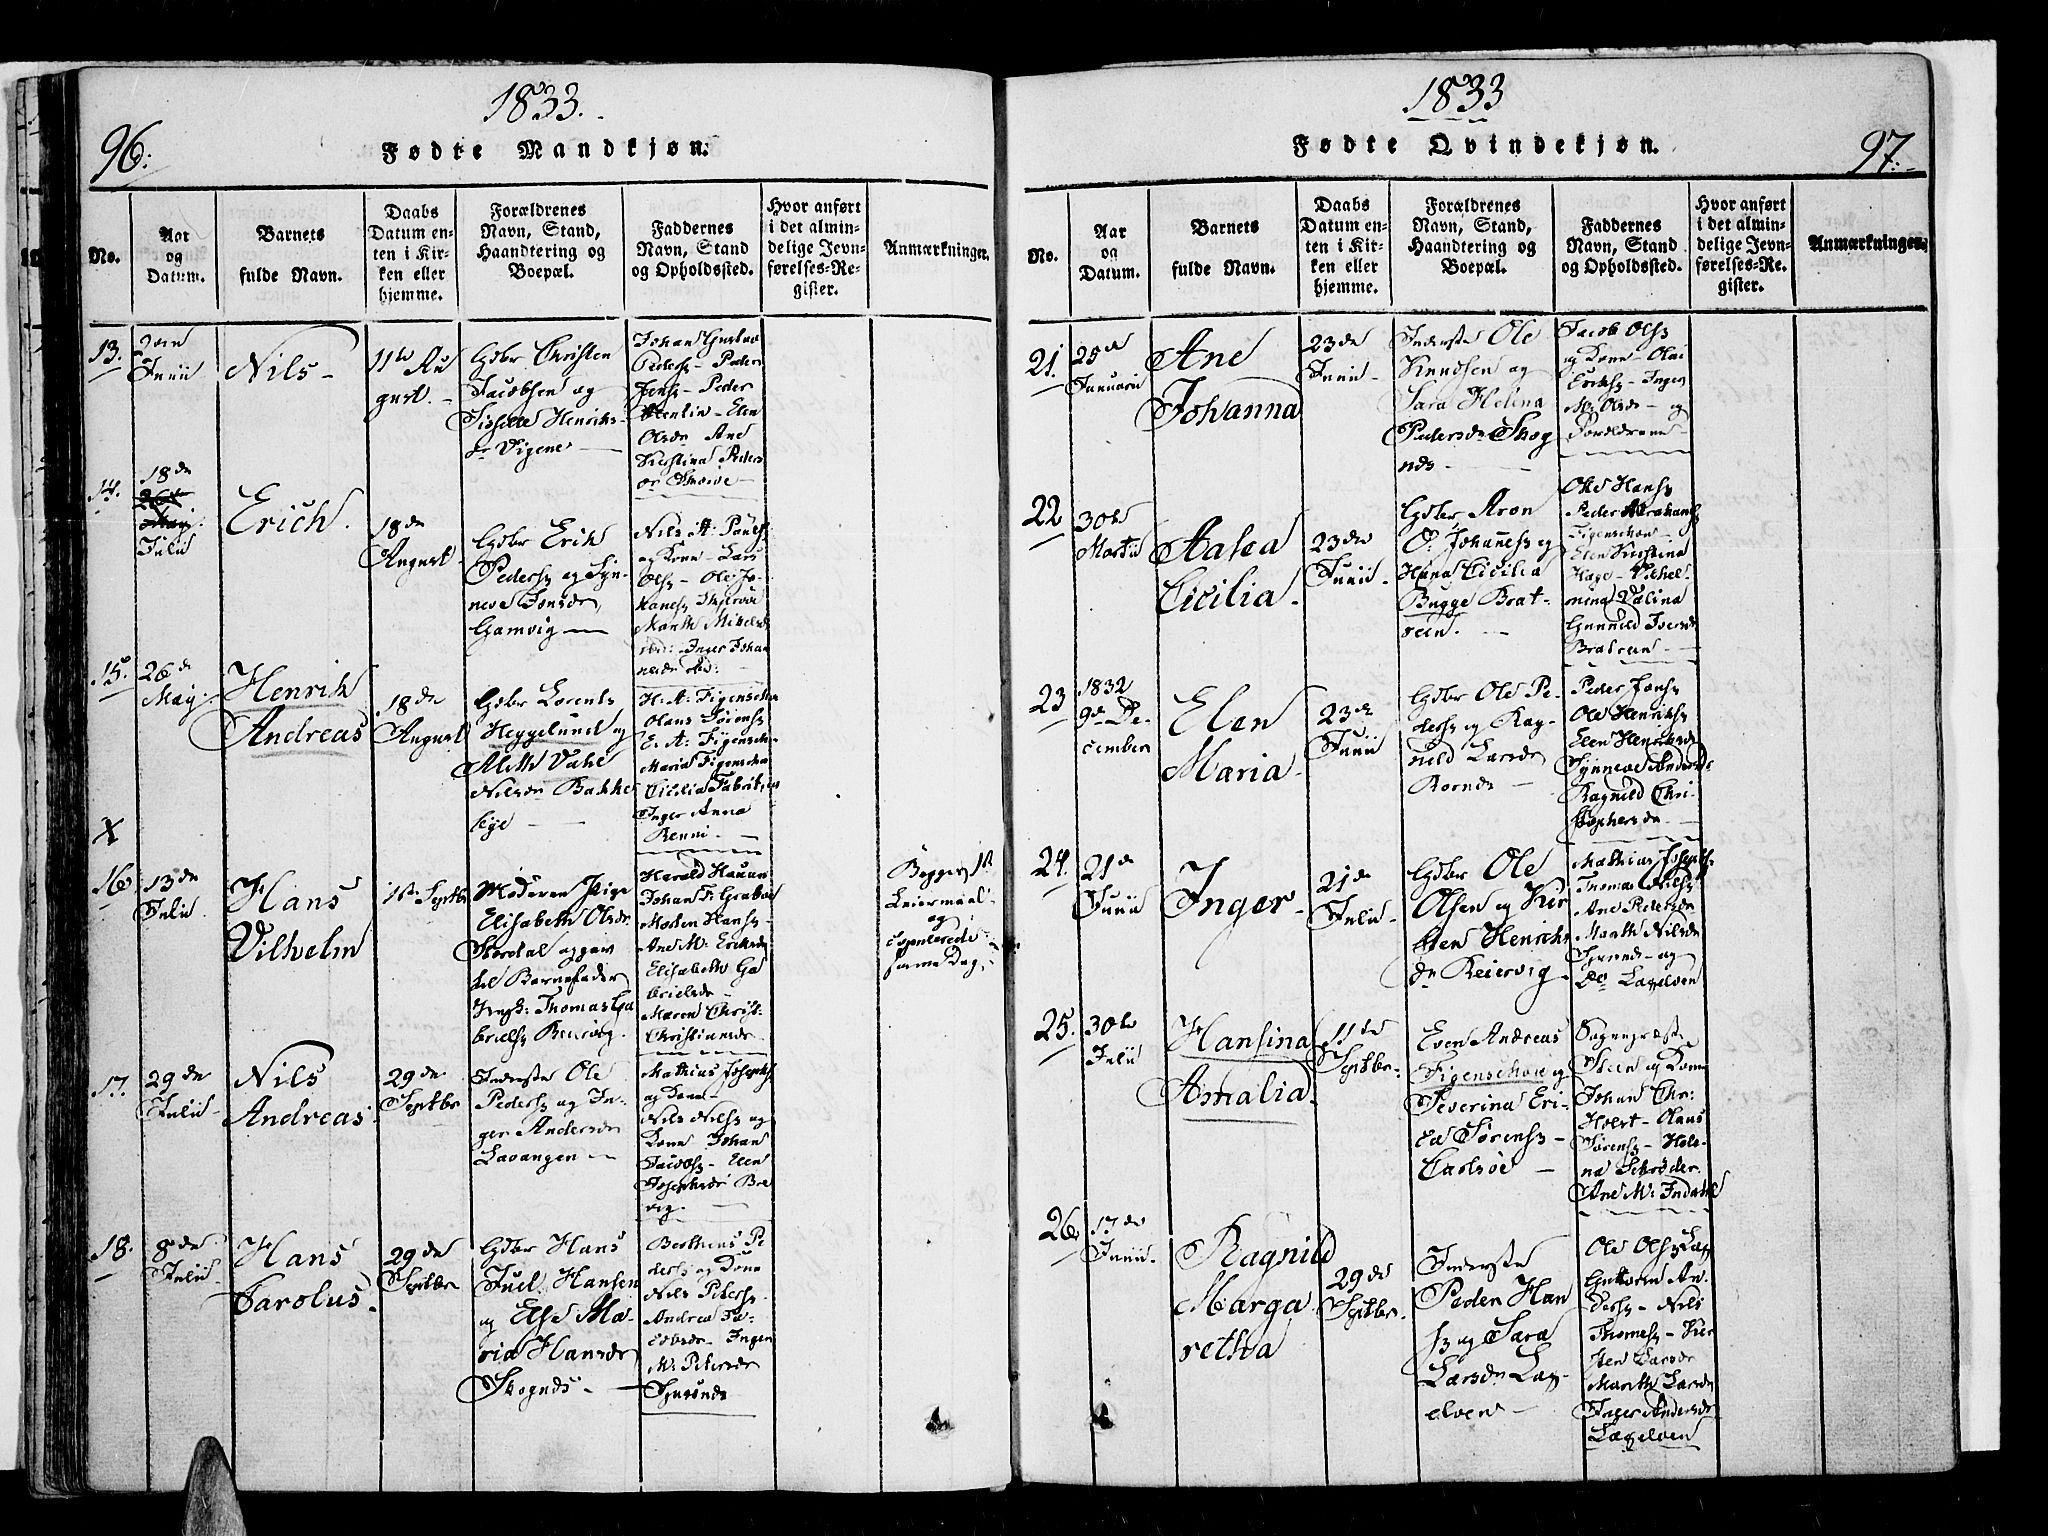 1833.
96.
Fødte Mandkjøn.
No.
Aar
og
Datum.
Barnets
fulde Navn.
Daabs
Datum en-
ten i Kir-
ken eller
hjemme.
Forældrenes
Navn, Stand,
Haandtering og
Boepæl.
Faddernes
Navn, Stand
og Opholdssted.
Hvor anført
i det almin-
delige Jevn-
førelses-Re-
gister.
Anmærkninger.
13.
Junii
Nils
11te Au
gust.
Gdbr Christen
Jacobsen og
Henriks-
dr Vigene
Johan Gustav
Peders- Peder
Jens- Peder
Elen
Olsdr Ane
Kirstina Peders
14.
18de
May
Julii
Erich.
18de
August
Gdbr Erik
Peders og Syn-
nev Jonsdr
Gamvig
Nils A. Pauls
og Kone Lars
Ols- Ole Jo-
hanes Skjervøe
Marith Mikelsdr
ibd: Inger Johan
nesdr ibd:
15.
26de
May.
Henrik
Andreas
18de
August
Gdbr Lorents
Heggelund og
Aleth Vahl
Nilsdr Bakke
bye
H. A. Figenschou
Olaus Sørens
E. A. Figensch
Maria Figenscho
Cicilia Fabritius
Inger Anna
X
16
13de
Julii
Hans
Vilhelm
1ste Septbr
Moderen Pige
Elisabeth Olsdr
Stordal
til Barnefader
Thomas Ga
briels
Harald Hauan
Johan F. Grabov
Morten Hans
Ane M. Eriksdr
Elisabeth Ga
brielsdr
Maren Christ:
Christiansdr
Begges 1ste
Leiermaal
og
copulerede
samme Dag.
17.
29de
Julii
Nils
Andreas
29de
Septbr
Inderste Ole
Peders og In-
ger Andersdr
Lavangen
Mathias Josephs
og Kone
Nils Nils og
Kone Johan
Jacobs- Elen
Josephsdr Bre
vig.
18.
8de
Julii
Hans
Carolus.
29de
Septbr
Gdbr Hans
Juel Hansen
og Else Ma-
ria Hansdr
Skognds
Berthius Pe
ders og Kone
Nils Peters
Andrea Ja-
cobsdr- Inger
M. Petersdr
1833
97.
Fødte Qvindekjøn.
No.
Aar
og
Datum.
Barnets
fulde Navn.
Daabs
Datum en-
ten i Kir-
ken eller
hjemme.
Forældrenes
Navn, Stand,
Haandtering og
Boepæl.
Faddernes
Navn, Stand
og Opholdssted.
Hvor anført
i det almin-
delige Jevn-
førelses-Re-
gister.
Anmærkninger.
21.
25de
Januarii
Ane
Johanna
23de
Junii
Inderste Ole
Knudsen og
Sara Helena
Pedersdr Skog
nds
Jacob Ols
og Kone- Olai
Eriks- Inger
M. Olsdr- og
Forældrene
22
30te
Martii
Aalea
Cicilia.
23de
Junii
Gdbr Aron
O. Johannes og
Hana Cicilia
Bugge Brat-
rein.
Ole Hans
Peder Abrahams
Figenschou
Elen Kirstina
Hage- Vilhel-
mina Valina
Gunnild Iversdr
Bratrein
23
1832
9de De-
cember
Elen
Maria
23de
Junii
Gdbr Ole Pe-
ders og Rag-
nild Larsdr
Rornds
Peder Jons
Ole Henriks
Elen Henriksdr
Synneve Andersdr
Ragnild Chri-
stophersdr
24.
21de
Junii
Inger
21de
Julii
Gdbr Ole
Olsen og Kir
sten Henriks
dr Reiervig.
Mathias Josephs
Thomas Nils
Ane Pedersdr
Marith Nilsdr
og
Do Laxelven
25.
30te
Julii
Hansina
Amalia.
11te
Septbr.
Even Andreas
Figenschou og
Severina Eri-
ca Sørens
Carlsøe
Sognepræst
Steen og Kone
Johan Chr:
Holst- Olaus
Sørens- Hele-
na Schrøder
Ane M. Indahl
26
17de
Junii
Ragnild
Marga
retha
29de
Septbr.
Inderste
Peder Han
s og Sara
Larsdr Lax-
elven
Ole Ols Lax
Guttorm An-
ders- Nils
Thomes- Kir
sten Larsdr
Marith Larsdr
Inger Andersdr
Laxelven